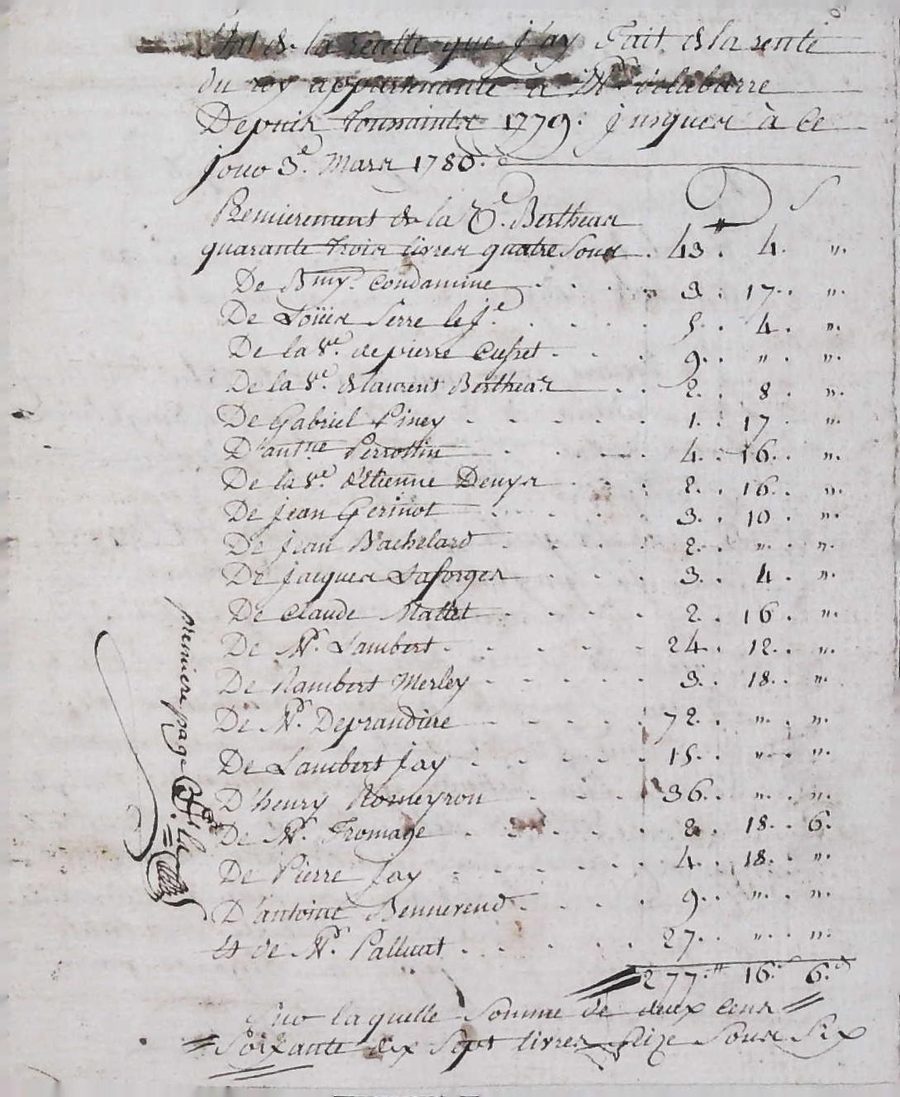 Etat de la recette que j'ay fait de la rente
du roy appartenante à Mr. delabarre
Depuis Toussaints 1779. jusques à ce
jour 3e. Mars 1780.
Premierement de la Ve. Bertheas
quarante trois livres quatre sous . 43 ₶ 4. ".
De Bmy. Condamine . . . 3 . 17 . . ".
De Loüis Serre le Je . . . . 5 . 4 . ".
De la Ve. de pierre Cussret . . . 9 . . " . ".
De la Ve. de laurent Bertheas . . 2 . 8 . ".
De Gabriel Piney . . . . 1 . 17 . ".
D'antne Perrottin . . . . 4 . 16 . . ".
De la Ve. d'Etienne Denys . . . 2 . . 16 . . ".
De Jean Gerinot . . . . 3 . . 10 . ".
De Jean Bachelard . . . . 2 . . " . . ".
De Jacques Laforges . . . . 3 . 4 . ".
De Claude Mallet . . . . 2 . 16 . ".
De Mr. Lambert . . . . 24 . . 12 . . ".
De Rambert Merley . . . . 3 . . 18 . . ".
De Mr. Deprandiere . . . . 72 . . " . . ".
De Lambert Jay . . . . 15 . . " . . ".
D'henry Romeyron . . . . 36 . . " . . ".
De Mr. Fromage . . . . 2 . 18 . . 6 .
De Pierre Jay . . . . 4 . 18 . . ".
D'antoine Bennevend . . . . 9 . . " . . ".
Et de Mr. Palluat . . . . 27 . . " . . ".
277.₶ 16.s 6.d
Sur laquelle Somme de deux cens
Soixante dix Sept livres Seize Sous Six
premiere page